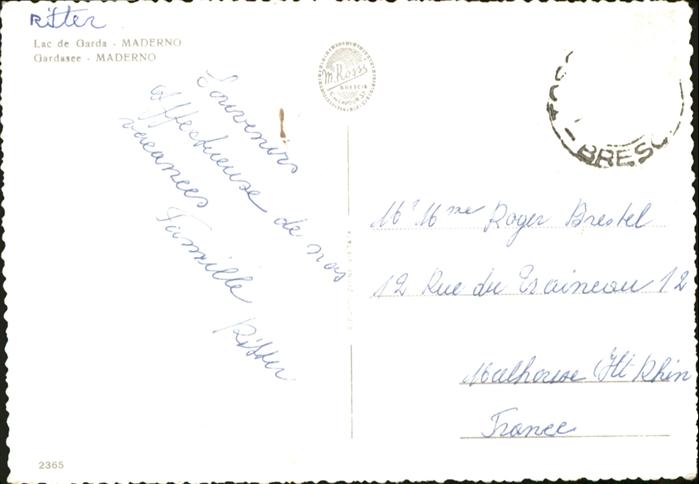 Ritter
Lac de Garda - MADERNO
Gardasee - MADERNO
M. Rossi
BRESCIA
Souvenirs
affectueuse de nos
vacances
Famille Ritter
Mr Mme Roger Brestel
12 Rue du 12
Mulhouse Ht Rhin
France
BRESC
2365